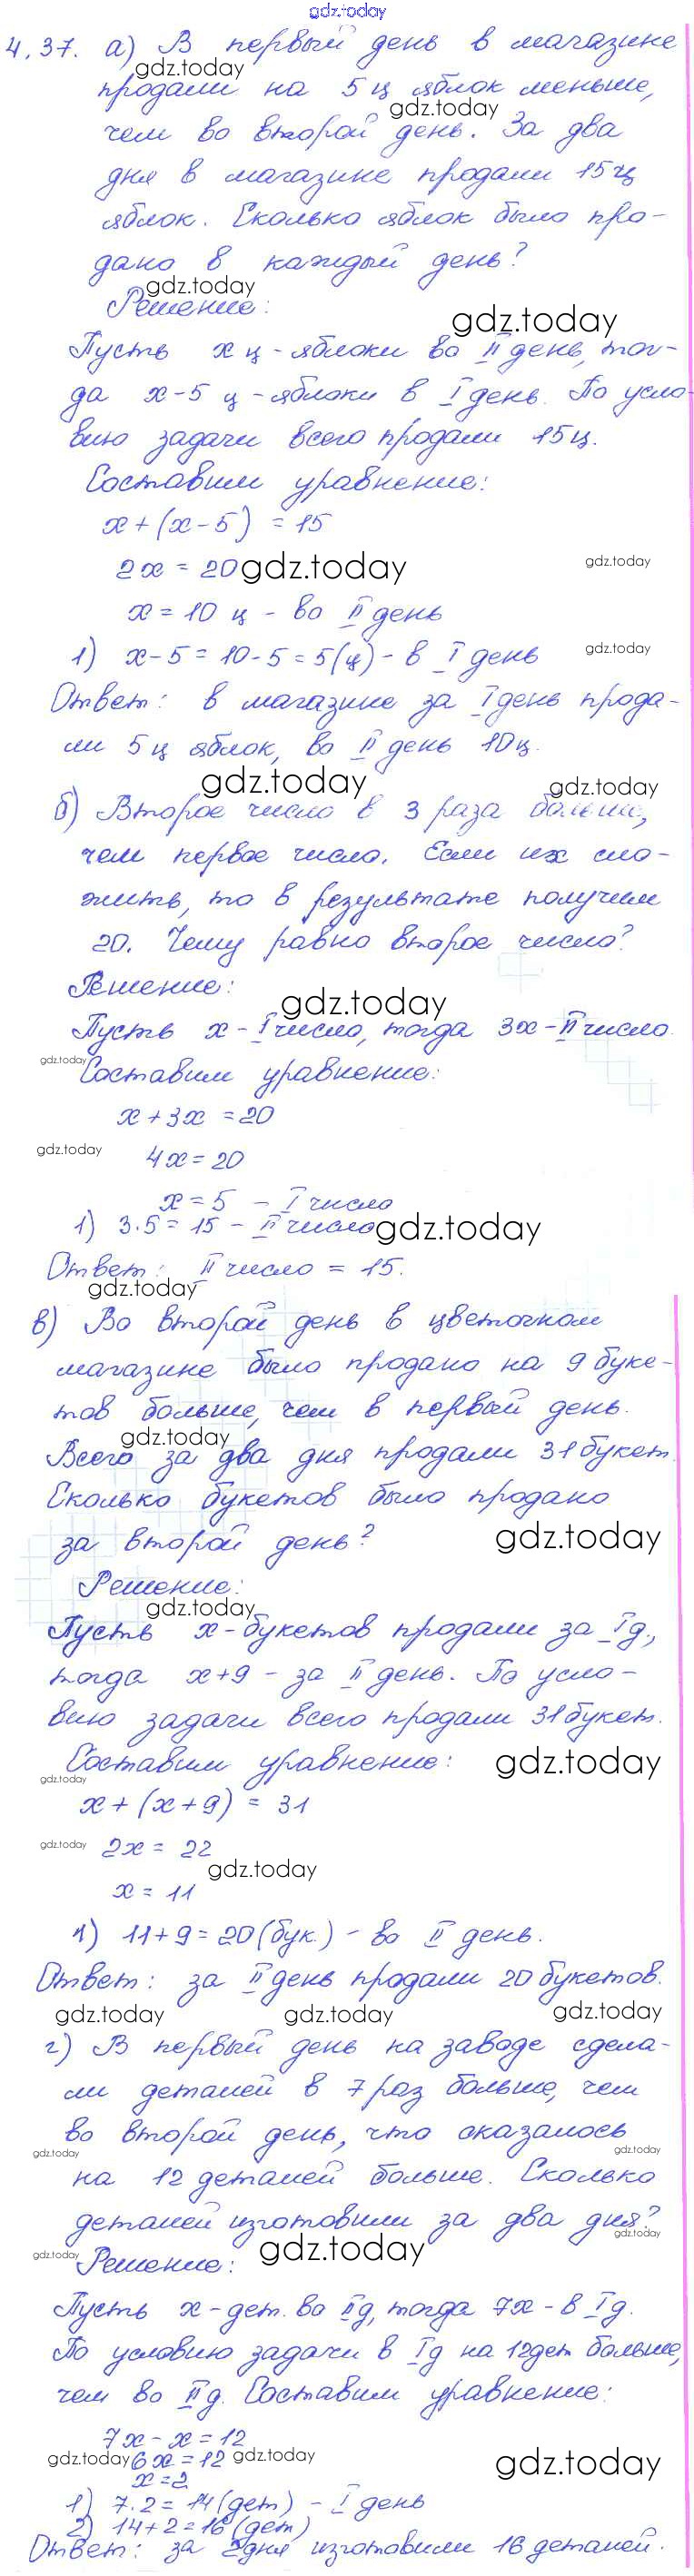 gdz.today
4.37. а) В первый день в магазине
gdz.today
продали на 5 ц яблок меньше,
gdz.today
чем во второй день. За два
дня в магазине продали 15 ц
яблок. Сколько яблок было про-
дано в каждый день?
gdz.today
Решение:
gdz.today
Пусть х ц - яблоки во II день, тог-
да х-5 ц - яблоки в I день. По усло-
вию задачи всего продали 15 ц.
Составим уравнение:
х + (х - 5) = 15
2х = 20 gdz.today gdz.today
х = 10 ц - во II день
1) х - 5 = 10 - 5 = 5 (ц) - в I день gdz.today
Ответ: в магазине за I день прода-
ли 5 ц яблок, во II день 10 ц.
gdz.today gdz.today
б) Второе число в 3 раза больше,
чем первое число. Если их сло-
жить, то в результате получим
20. Чему равно второе число?
Решение:
gdz.today
Пусть х - I число, тогда 3х - II число.
gdz.today Составим уравнение:
х + 3х = 20
gdz.today 4х = 20
х = 5 - I число
1) 3·5 = 15 - II число gdz.today
Ответ: II число = 15.
gdz.today
в) Во второй день в цветочном
магазине было продано на 9 буке-
тов больше, чем в первый день.
gdz.today
Всего за два дня продали 31 букет.
Сколько букетов было продано
за второй день? gdz.today
Решение:
gdz.today
Пусть х - букетов продали за I д.,
тогда х+9 - за II день. По усло-
вию задачи всего продали 31 букет.
Составим уравнение: gdz.today
gdz.today
х + (х + 9) = 31
gdz.today 2х = 22
gdz.today
х = 11
1) 11 + 9 = 20 (бук.) - во II день.
Ответ: за II день продали 20 букетов.
gdz.today gdz.today gdz.today
г) В первый день на заводе сдела-
ли деталей в 7 раз больше, чем
во второй день, что оказалось
gdz.today gdz.today
на 12 деталей больше. Сколько
деталей изготовили за два дня?
gdz.today
gdz.today Решение: gdz.today
Пусть х - дет. во II д, тогда 7х - в I д.
По условию задачи в I д на 12 дет больше,
чем во II д. Составим уравнение:
7х - х = 12
gdz.today 6х = 12 gdz.today gdz.today
х = 2
1) 7·2 = 14 (дет) - I день
2) 14 + 2 = 16 (дет)
Ответ: за 2 дня изготовили 16 деталей.